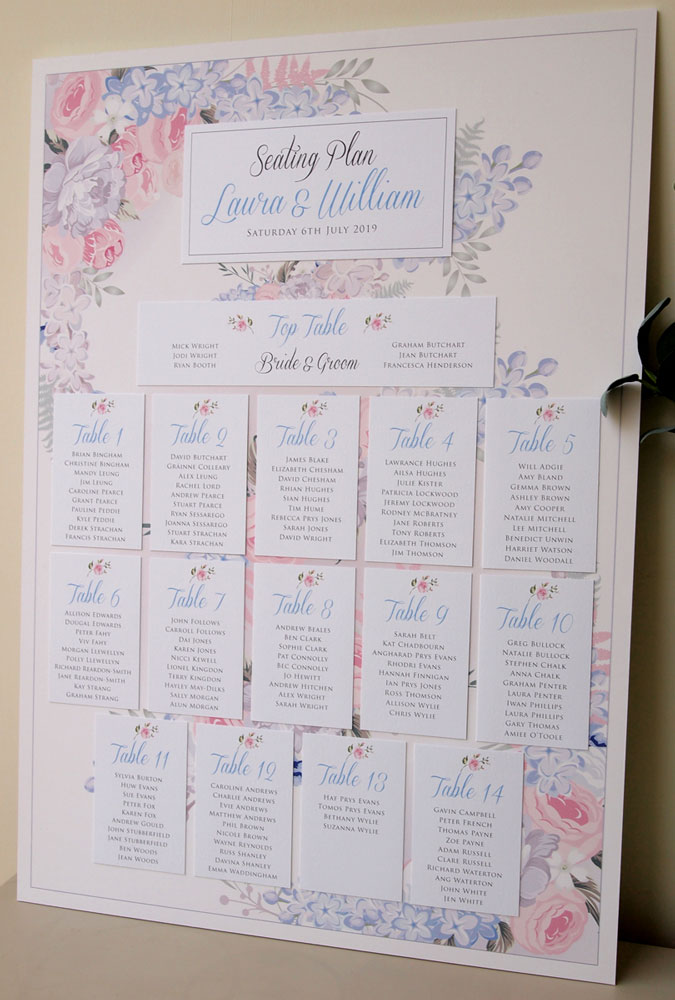 Seating Plan
Laura & William
Saturday 6th July 2019
Top Table
Mick Wright
Jodi Wright
Ryan Booth
Bride & Groom
Graham Butchart
Jean Butchart
Francesca Henderson
Table 1
Brian Bingham
Christine Bingham
Mandy Leung
Jim Leung
Caroline Pearce
Grant Pearce
Pauline Peddie
Kyle Peddie
Derek Strachan
Francis Strachan
Table 2
David Butchart
Gráinne Colleaby
Alex Leung
Rachel Lord
Andrew Pearce
Stuart Pearce
Ryan Sessarego
Joanna Sessarego
Stuart Strachan
Kara Strachan
Table 3
James Blake
Elizabeth Chesham
David Chesham
Rhian Hughes
Sian Hughes
Tim Hume
Rebecca Prys Jones
Sarah Jones
David Wright
Table 4
Lawrance Hughes
Ailsa Hughes
Julie Kister
Patricia Lockwood
Jeremy Lockwood
Rodney McBratney
Jane Roberts
Tony Roberts
Elizabeth Thomson
Jim Thomson
Table 5
Will Adgie
Amy Bland
Gemma Brown
Ashley Brown
Amy Cooper
Natalie Mitchell
Lee Mitchell
Benedict Unwin
Harriet Watson
Daniel Woodall
Table 6
Allison Edwards
Dougal Edwards
Peter Fahy
Viv Fahy
Morgan Llewellyn
Polly Llewellyn
Richard Reardon-Smith
Jane Reardon-Smith
Kay Strang
Graham Strang
Table 7
John Follows
Carroll Follows
Dai Jones
Karen Jones
Nicci Kewell
Lionel Kingdon
Terry Kingdon
Hayley May-Dilks
Sally Morgan
Alun Morgan
Table 8
Andrew Beales
Ben Clark
Sophie Clark
Pat Connolly
Bec Connolly
Jo Hewitt
Andrew Hitchen
Alex Wright
Sarah Wright
Table 9
Sarah Belt
Kat Chadbourn
Angharad Prys Evans
Rhodri Evans
Hannah Finnigan
Ian Prys Jones
Ross Thomson
Allison Wylie
Chris Wylie
Table 10
Greg Bullock
Natalie Bullock
Stephen Chalk
Anna Chalk
Graham Penter
Laura Penter
Iwan Phillips
Laura Phillips
Gary Thomas
Amiee O'Toole
Table 11
Sylvia Burton
Huw Evans
Sue Evans
Peter Fox
Karen Fox
Andrew Gould
John Stubberfield
Jane Stubberfield
Ben Woods
Jean Woods
Table 12
Caroline Andrews
Charlie Andrews
Evie Andrews
Matthew Andrews
Phil Brown
Nicole Brown
Wayne Reynolds
Russ Shanley
Davina Shanley
Emma Waddingham
Table 13
Hay Prys Evans
Tomos Prys Evans
Bethany Wylie
Suzanna Wylie
Table 14
Gavin Campbell
Peter French
Thomas Payne
Zoe Payne
Adam Russell
Clare Russell
Richard Waterton
Ang Waterton
John White
Jen White